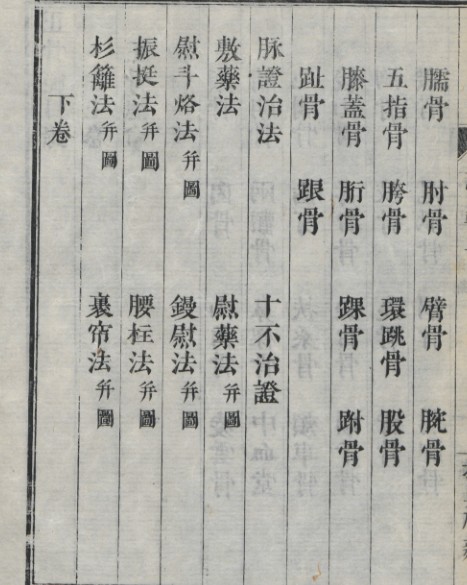 臑骨 肘骨 臂骨 腕骨
五指骨 胯骨 環跳骨 股骨
膝蓋骨 䯒骨 踝骨 跗骨
趾骨 跟骨
脉證治法 十不治證
敷藥法 熨藥法 并圖
熨斗烙法 并圖 鏝熨法 并圖
振挺法 并圖 腰柱法 并圖
杉籬法 并圖 裹帘法 并圖
下卷